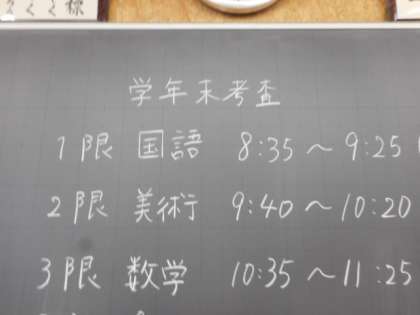 学年末考査
1限 国語 8:35～9:25
2限 美術 9:40～10:20
3限 数学 10:35～11:25